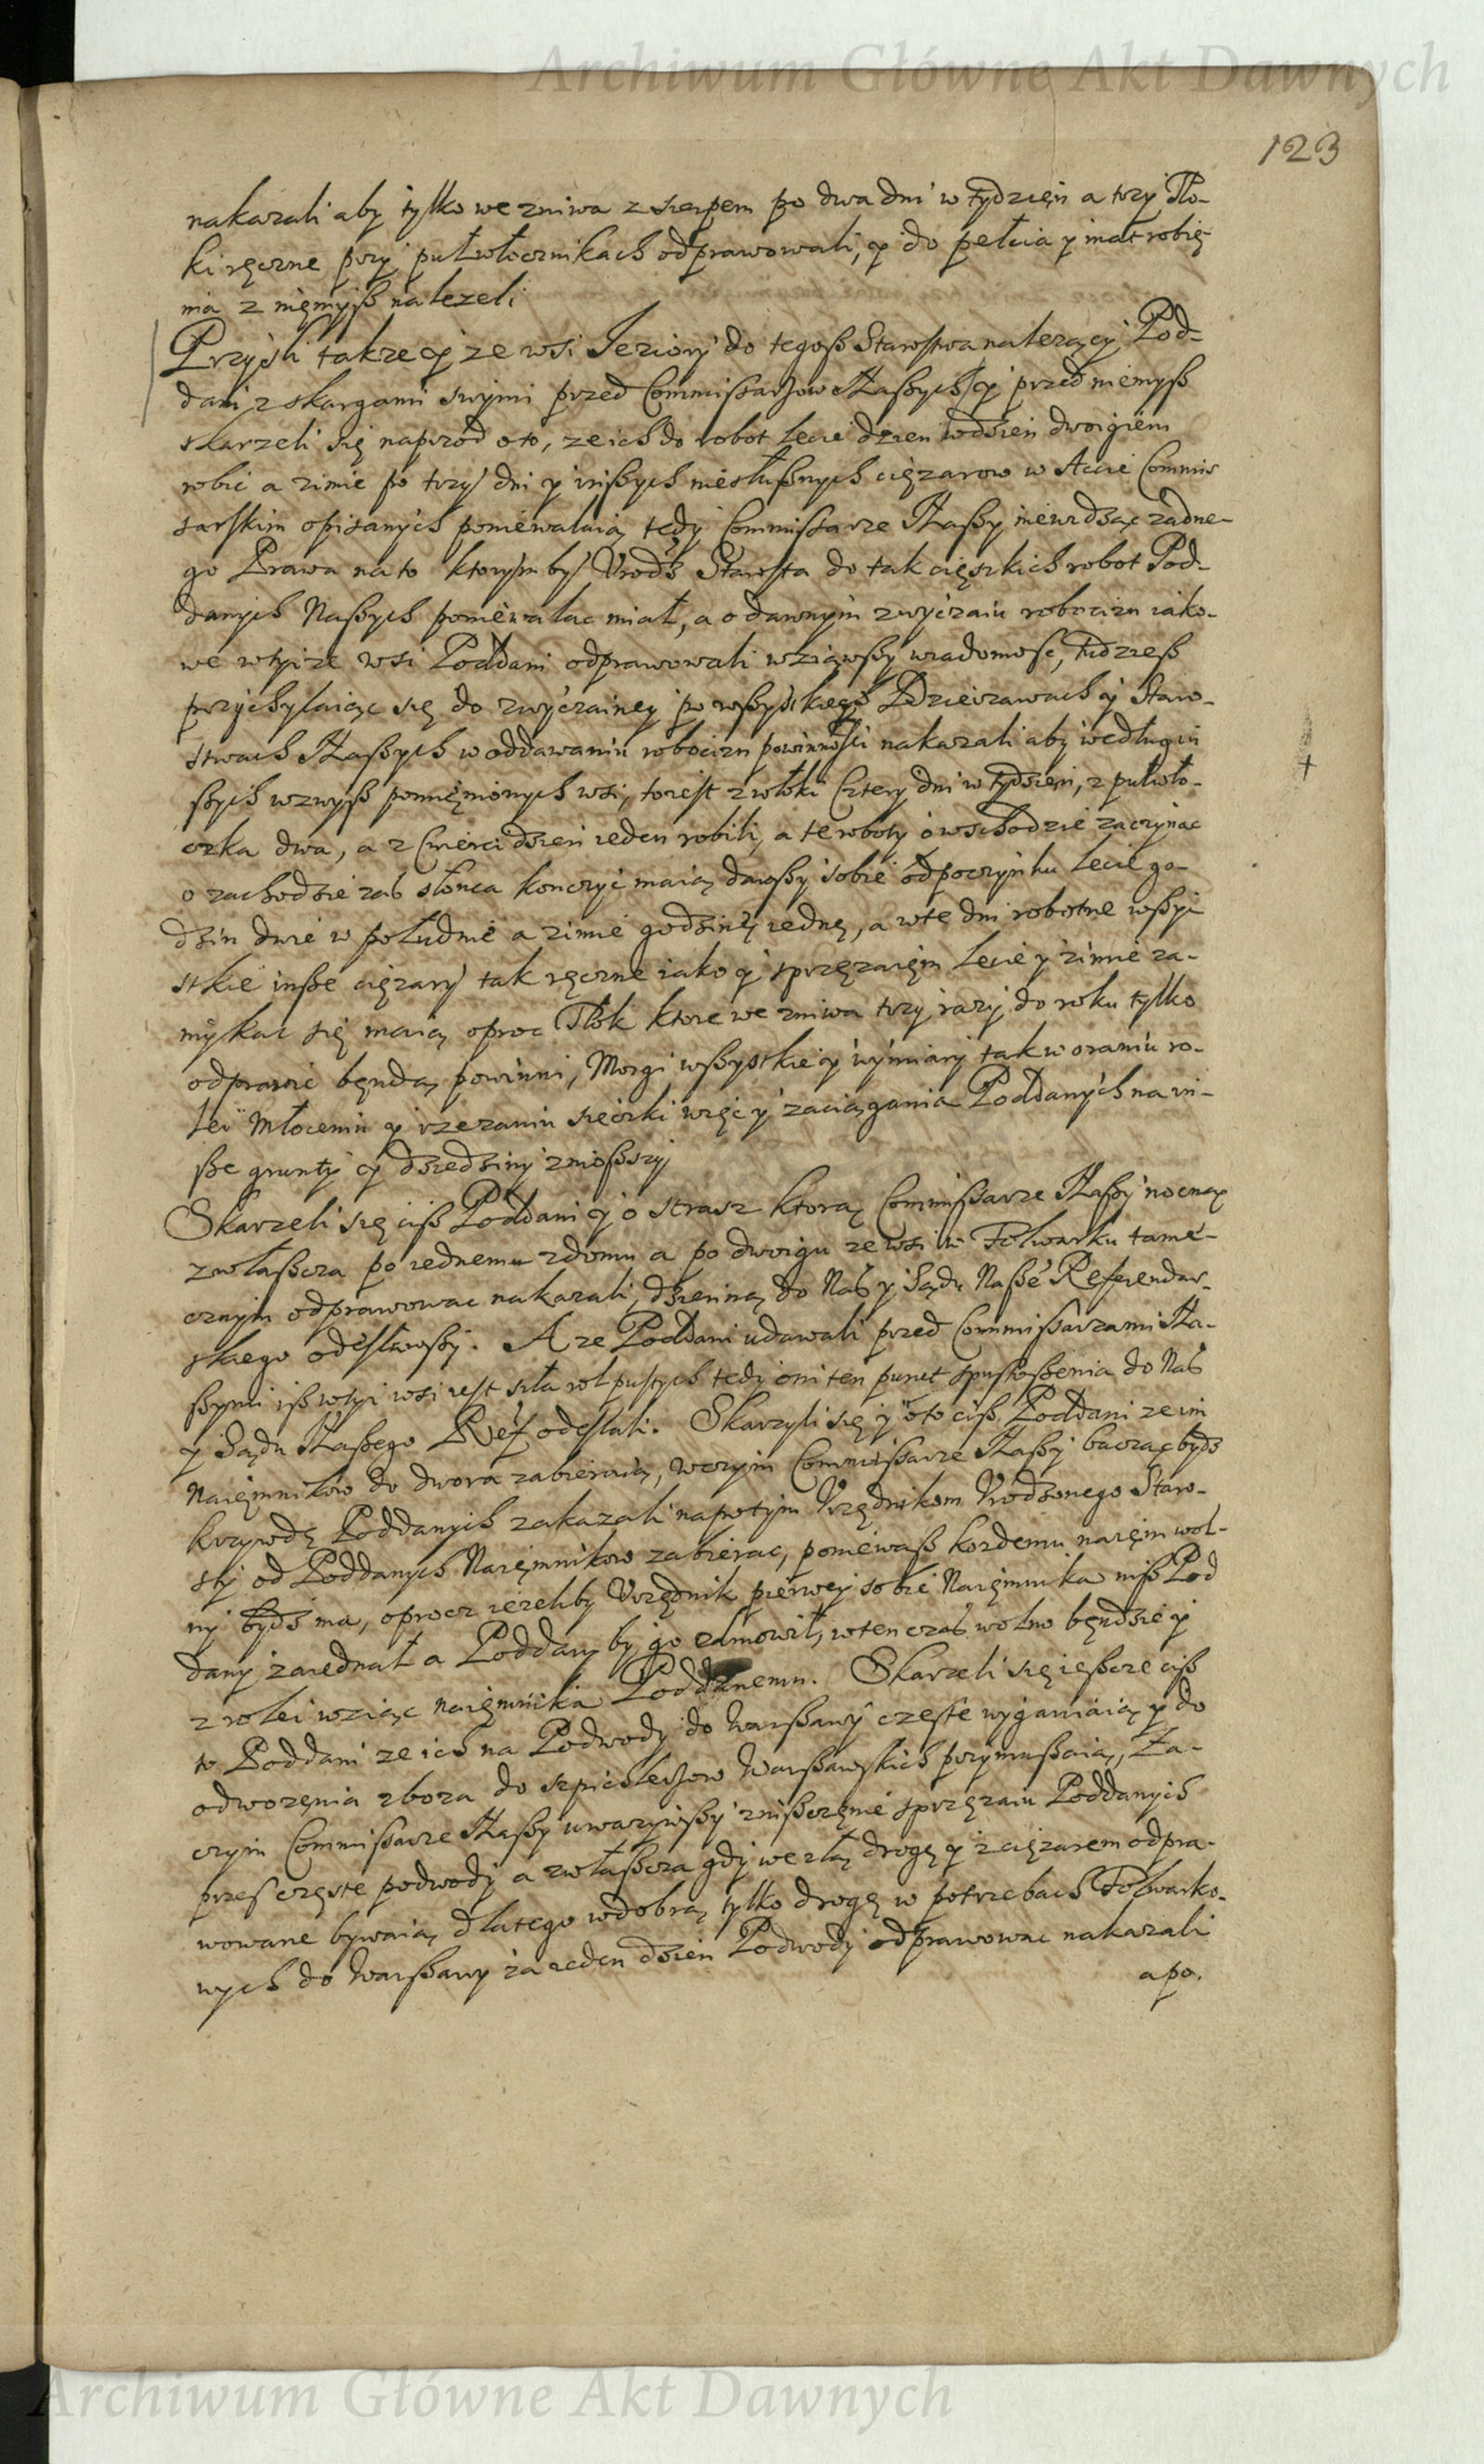 Archiwum Główne Akt Dawnych
123
nakazali aby tylko we zniwa z sierpem po dwa dni w tydzięn a trzy Tło-
ki ręczne przy pułwłocznikach odprawowali, y do pełcia y inat robię
nia z nięmyß nalezeli
Przyśli takze y ze wsi Jeziory do tegoß Starostwa nalezący Pod-
dani z skargami swymi przed Commissarzow Naßych, y przed niemyß
skarzeli się naprzod o to, ze ich do robot lecie dzien wdzien dwoigiem
robic a zimie po trzy dni y inßych niesłußnych cięzarow w Accie Commis
sarskim opisanych poniewalaią tedy Commissarze Naßy niewidząc zadne-
go Prawa na to ktorymby Vrodz Starosta do tak cięszkich robot Pod-
danych Naßych poniewalac miał, a o dawnym zwyczaiu robocizn iako-
we wtyize wsi Poddani odprawowali wziąwßy wiadomosc, tudzieß
przychylaiąc się do zwyczainey po wßyskich Dzierzawach y Staro-
stwach Naßych w oddawaniu robocizn powinnosci nakazali aby według in
ßych wzwyß pomięnionych wsi, to iest z włoki Cztery dni w tydzięn, z pułwło-
czka dwa, a z Cwierci dzien ieden robili, a te roboty o wschodzie zaczynac
o zachodzie zas słonca konczyc maią dawßy sobie odpoczynku lecie go-
dzin dwie w południe a zimie godzinę iednę, a wte dni robotne wßyi
stkie inße cięzary tak ręczne iako y sprzęzaięm lecie y zimie za-
mykac się maią oproc Tłok ktore we zniwa trzy razy do roku tylko
odprawic będą powinni, Morgi wßystkie y wymiary tak w oraniu ro-
lei Młoceniu y rzezaniu sieczki więc y zaciągania Poddanych na in-
ße grunty y dziedziny zniosszy
Skarzeli się ciß Poddani y o strasz ktorą Commissarze Naßy nocną
zwłaßcza po iednemu zdomu a po dwoigu ze wsi w Folwarku tame-
cznym odprawowac nakazali, dzienną do Nas y Sądu Naße Referendar-
skiego odesławßy. A ze Poddani udawali przed Commissarzami Na-
ßymi iß wtyi wsi iest siła rol pustych tedy oni ten punct spustoßenia do Nas
y Sądu Naßego Ref odesłali. Skarzyli się y o to ciß Poddani ze im
Naięmnikow do dwora zabieraią, wczym Commissarze Naßy bacząc bydz
krzywdę Poddanych zakazali napotym Vrzędnikom Vrodzonego Staro-
sty od Poddanych Naięmnikow zabierac, poniewaß kozdemu naięm wol-
ny bydz ma, oprocz iezeliby Vrzędnik pierwey sobie Naięmnika niß Pod
dany zaiednał a Poddany by go odmowił, wten czas wolno będzie y
z rolei wziąc naięmnika Poddanemu. Skarzeli się ießcze ciß
to Poddani ze ich na Podwody do Warßawy częste wyganiaią y do
odwozęnia zboza do szpichlerzow Warßawskich przymußaią, Za-
czym Commissarze Naßy uwazywßy znißczęnie sprzęzaiu Poddanych
przes częste podwody a zwłaßcza gdy we złą drogę y z cięzarem odpra-
wowane bywaią dlatego wdobrą tylko drogę w potrzebach Folwarko-
wych do Warßawy za ieden dzien Podwody odprawowac nakazali
a po.
Archiwum Główne Akt Dawnych